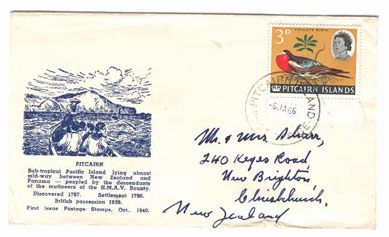 FRIGATE BIRD
3D
PITCAIRN ISLANDS
PITCAIRN ISLAND
-6.JA66
PITCAIRN
Sub-tropical Pacific Island lying almost
mid-way between New Zealand and
Panama — peopled by the descendants
of the mutineers of the H.M.A.V. Bounty.
Discovered 1767. Settlement 1790.
British possession 1839.
First issue Postage Stamps, Oct., 1940.
Mr. & Mrs
240 Keyes Road
New Brighton
Christchurch,
New Zealand